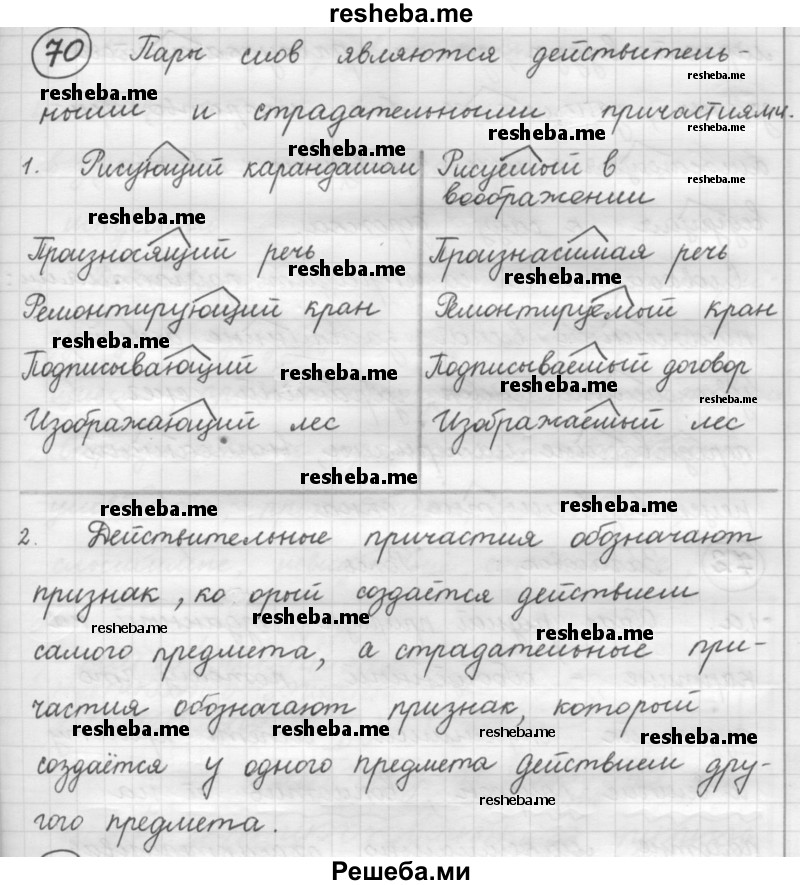 resheba.me
70 Пары слов являются действитель-
resheba.me
resheba.me
ными и страдательными причастиями.
resheba.me
resheba.me
1. Рисующий карандашом Рисуемый в
resheba.me
resheba.me
воображении
resheba.me
Произносящий речь Произнасимая речь
resheba.me
resheba.me
Ремонтирующий кран Ремонтируемый кран
resheba.me
Подписывающий Подписываемый договор
resheba.me
resheba.me
resheba.me
Изображающий лес Изображаемый лес
resheba.me
resheba.me
resheba.me
2. Действительные причастия обозначают
признак, ко орый создаётся действием
resheba.me
resheba.me
resheba.me
самого предмета, а страдательные при-
частия обозначают признак, который
resheba.me
resheba.me
resheba.me
resheba.me
создаётся у одного предмета действием дру-
resheba.me
гого предмета.
Решеба.ми